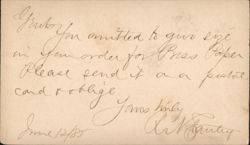 You omitted to give size
in your order for Press Paper
Please send it on a postal
card & oblige
Yours truly
June 12/80